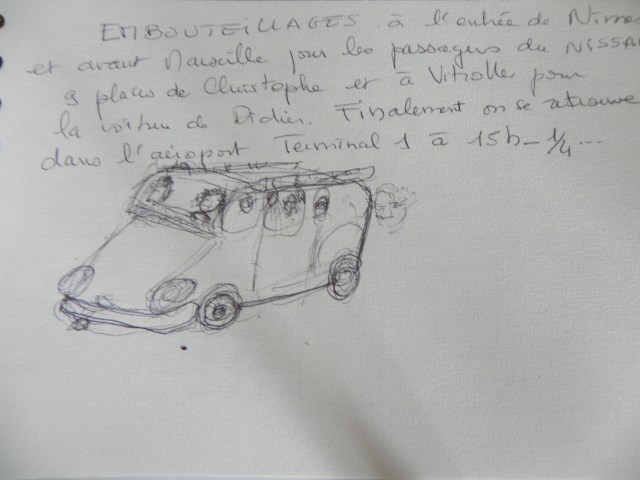 EMBOUTEILLAGES à l'entrée de Nimes
et avant Marseille pour les passagers du NISSAN
9 places de Christophe et à Vitrolle pour
la voiture de Didier. Finalement on se retrouve
dans l'aéroport Terminal 1 à 15h-1/4...